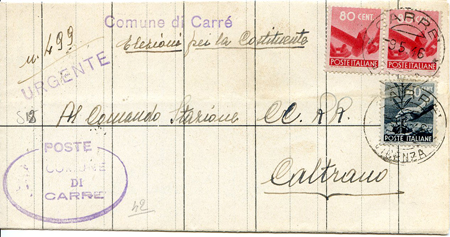 Comune di Carré
n. 499 Elezioni per la Costituente
URGENTE
80 CENT
POSTE ITALIANE
POSTE ITALIANE
CARRE
POSTE ITALIANE
VICENZA
Al Comando Stazione CC. RR.
Caltrano
POSTE
COMUNE
DI
CARRE
42